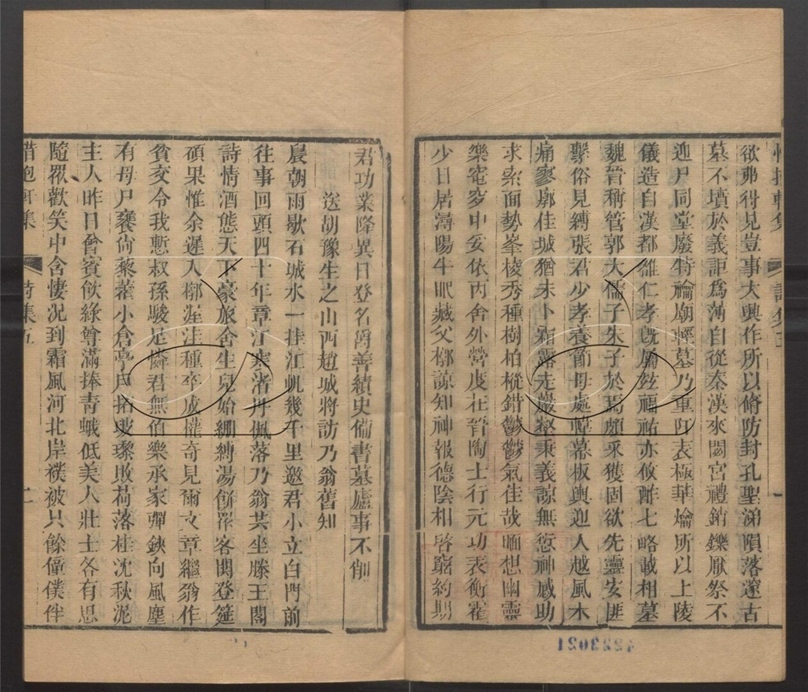 惜抱軒集 詩集五 一
欲弗得見豈事大興作所以脩防封孔聖涕隕落邃古
墓不墳於義詎為薄自從秦漢來閟宮禮銷鑠厭祭不
迎尸同堂廢特論廟輕墓乃重阡表極華墖所以上陵
儀造自漢都雒仁孝既屬茲福祐亦攸酢七略載相墓
魏晉稱管郭大儒子朱子於焉頗采獲固欲先靈安匪
擊俗見縛張君少孝養節母處帷幕板輿迎人越風木
痛寥廓佳城猶未卜霜露走巖壑秉義諒無愆神感助
求索面勢峯棱秀種樹柏樅錯鬱鬱氣佳哉緬想幽靈
樂窀穸中妥依丙舍外營度在晉陶士行元功表衡霍
少日居潯陽牛眠藏父槨諒知神報德陰相啓窮約期
君功業隆異日登名爵善續史備書墓廬事不削
送胡豫生之山西趙城將訪乃翁舊知
晨朝雨歇石城水一挂江帆幾千里邀君小立白門前
往事回頭四十年章江寒渚丹楓落乃翁共坐滕王閣
詩情酒態天下豪旅舍生兒始綳縛湯餅羅客閧登筵
碩果惟余遲入槨渥洼種卒成權奇見爾文章繼翁作
貧交令我慙叔孫駿足憐君無伯樂承家彈鋏向風塵
有母尸饔尚藜藿小倉亭戶拓玻瓈敗荷落桂沈秋泥
主人昨日會賓飲綠尊滿捧青蛾低美人壯士各有思
隨眾歡笑中含悽况到霜風河北岸襆被只餘僮僕伴
惜抱軒集 詩集五 二
4323021